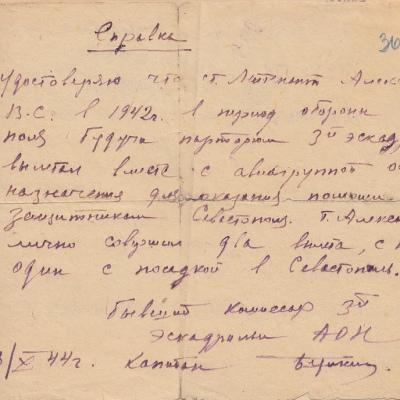 Справка
36
Удостоверяю что ст. Лейтенант Алекс
В.С. в 1942г. в период обороны
поля будучи парторгом 3й эскад
вылетал вместе с авиагруппой о
назначения для оказания помощи
защитникам Севастополя. т. Алекс
лично совершил два вылета, с
один с посадкой в Севастополь.
бывший комиссар 3й
эскадрильи АОН
/X 44г. капитан